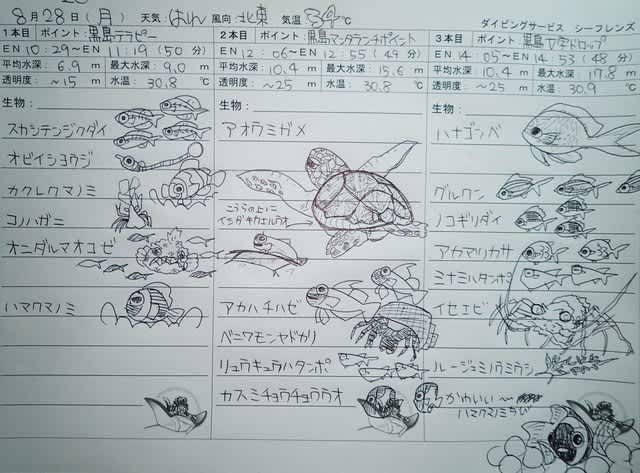 8月28日(月) 天気:はれ 風向:北東 気温:34℃
ダイビングサービス シーフレンズ
1本目 ポイント:黒島テラピー
EN 10:29〜EN 11:19(50分)
平均水深:6.9m 最大水深:9.0m
透明度:〜15m 水温:30.8℃
生物:
スカシテンジクダイ
オビイシヨウジ
カクレクマノミ
コノハガニ
オニダルマオコゼ
ハマクマノミ
2本目 ポイント:黒島マンタランチポイント
EN 12:06〜EN 12:55(49分)
平均水深:10.4m 最大水深:15.6m
透明度:〜25m 水温:30.8℃
生物:
アオウミガメ
こうらの上に
イシガキカエルウオ
アカハチハゼ
ベニワモンヤドカリ
リュウキュウハタンポ
カスミチョウチョウウオ
3本目 ポイント:黒島V字ドロップ
EN 14:05〜EN 14:53(48分)
平均水深:10.4m 最大水深:17.8m
透明度:〜25m 水温:30.9℃
生物:
ハナゴンベ
グルクン
ノコギリダイ
アカマツカサ
ミナミハタンポ
イセエビ
ルージュミノウミウシ
かわいい〜
ハマクマノミちび